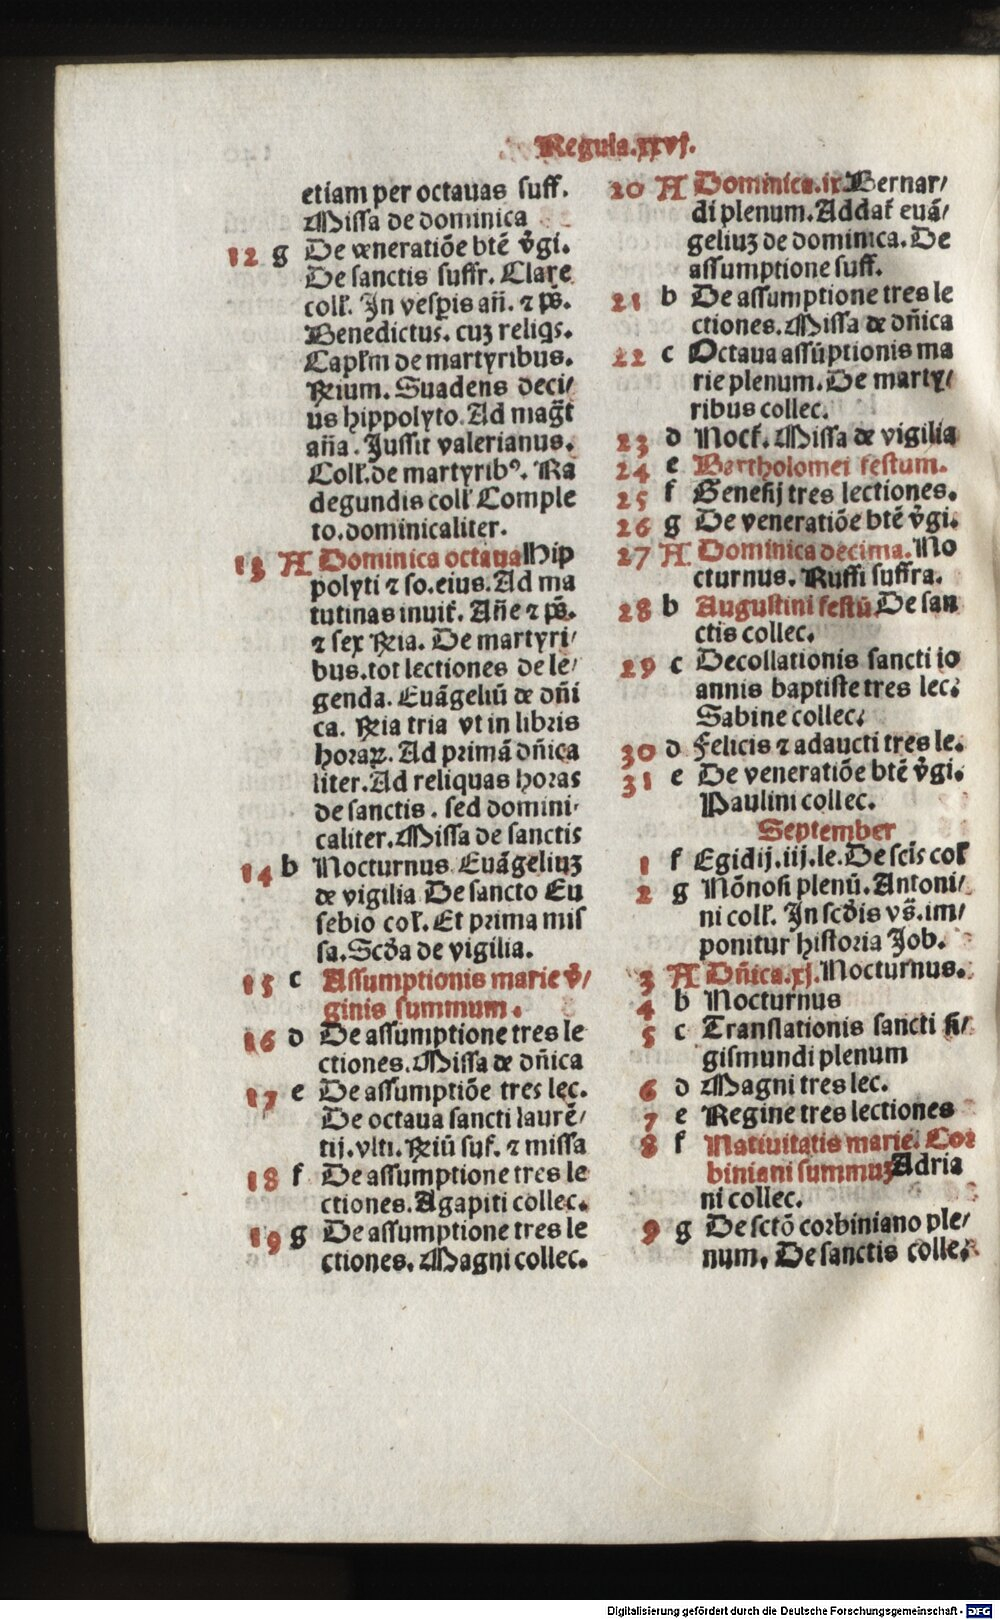 .Regula.xxvj.
etiam per octauas suff.
Missa de dominica
12 g De veneratiõe btẽ v̓gi.
De sanctis suffr. Clare
coll'. In vesp̲is añ. ⁊ p̄s.
Benedictus. cuȝ reliqs.
Capl'm de martyribus.
℟ium. Suadens deci/
us hippolyto. Ad mag̃t
aña. Jussit valerianus.
Coll'. de martyribꝰ. Ra
degundis coll' Comple
to. dominicaliter.
13 A Dominica octaua Hip
polyti ⁊ so. eius. Ad ma
tutinas inuit'. Añe ⁊ p̄s.
⁊ sex ℟ia. De martyri/
bus. tot lectiones de le/
genda. Euãgeliũ de dñi
ca. ℟ia tria vt in libris
horaꝝ. Ad primã dñica
liter. Ad reliquas horas
de sanctis. sed domini/
caliter. Missa de sanctis
14 b Nocturnus. Euãgeliuȝ
de vigilia De sancto Eu
sebio col'. Et prima mis
sa. Scd̓a de vigilia.
15 c Assumptionis marie v̓/
ginis summum.
16 d De assumptione tres le
ctiones. Missa de dñica
17 e De assumptiõe tres lec.
De octaua sancti laurẽ/
tij. vlti. ℟iũ suf. ⁊ missa
18 f De assumptione tres le
ctiones. Agapiti collec.
19 g De assumptione tres le
ctiones. Magni collec.
20 A Dominica.ix. Bernar/
di plenum. Addat' euã/
geliuȝ de dominica. De
assumptione suff.
21 b De assumptione tres le
ctiones. Missa de dñica
22 c Octaua assũptionis ma
rie plenum. De marty/
ribus collec.
23 d Noct'. Missa de vigilia
24 e Bartholomei festum.
25 f Genesij tres lectiones.
26 g De veneratiõe btẽ v̓gi.
27 A Dominica decima. No
cturnus. Ruffi suffra.
28 b Augustini festũ De san
ctis collec.
29 c Decollationis sancti io
annis baptiste tres lec.
Sabine collec.
30 d Felicis ⁊ adaucti tres le.
31 e De veneratiõe btẽ v̓gi.
Paulini collec.
September
1 f Egidij. iij. le. De scĩs col'
2 g Nõnosi plenũ. Antoni/
ni coll'. In scd̓is vs̃. im/
ponitur historia Job.
3 A Dñica.xj. Nocturnus.
4 b Nocturnus
5 c Translationis sancti si/
gismundi plenum
6 d Magni tres lec.
7 e Regine tres lectiones
8 f Natiuitatis marie. Cor
biniani summuȝ Adria
ni collec.
9 g De sctõ corbiniano ple/
num. De sanctis colle.
Digitalisierung gefördert durch die Deutsche Forschungsgemeinschaft - DFG